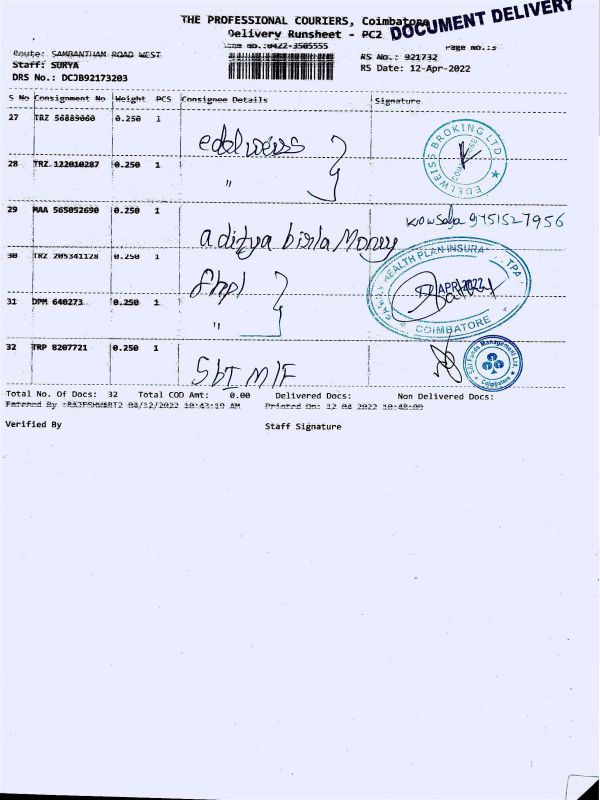 THE PROFESSIONAL COURIERS, Coimbatore
DOCUMENT DELIVERY
Delivery Runsheet - PC2
0422-3505555
Page No.:3
Route: SAMBANTHAM ROAD WEST
RS No.: 921732
Staff: SURYA
RS Date: 12-Apr-2022
DRS No.: DCJB92173203
S No Consignment No Weight PCS Consignee Details Signature
27 TRZ 56889060 0.250 1 edelweiss
EDELWEISS BROKING LTD
28 TRZ 122010287 0.250 1 "
29 MAA 565052690 0.250 1 aditya birla Money
9751527956
30 TRZ 205341128 0.250 1 fhpl
HEALTH PLAN INSURA TPA
APR 2022
COIMBATORE
31 DPM 640273 0.250 1 "
32 TRP 8207721 0.250 1 SbI M/F
Sbi Funds Management Ltd.
Coimbatore
Total No. Of Docs: 32 Total COD Amt: 0.00 Delivered Docs: Non Delivered Docs:
Entered By :RAJESHWARI2 04/12/2022 10:43:19 AM Printed On: 12 04 2022 10:48:09
Verified By Staff Signature